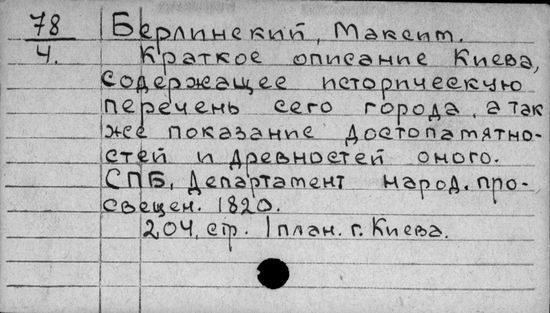 78 Берлинский, Максим.
4. Краткое описание Киева,
содержащее историческую
перечень сего города, а так
же показание достопамятно-
стей и древностей оного.
СПБ, Департамент народ. про-
свещен. 1820.
204, стр. 1 план. г. Киева.